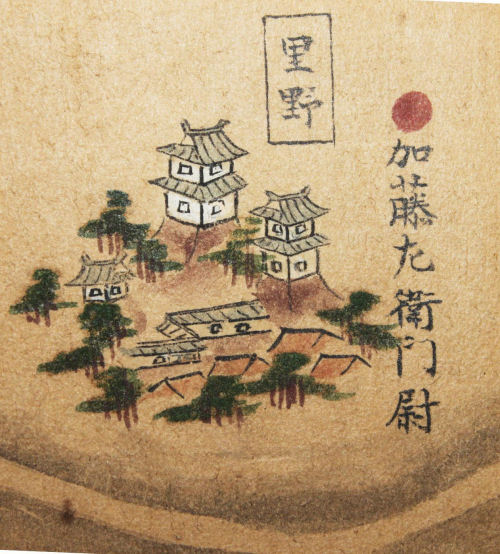 加藤左衛門尉
里野